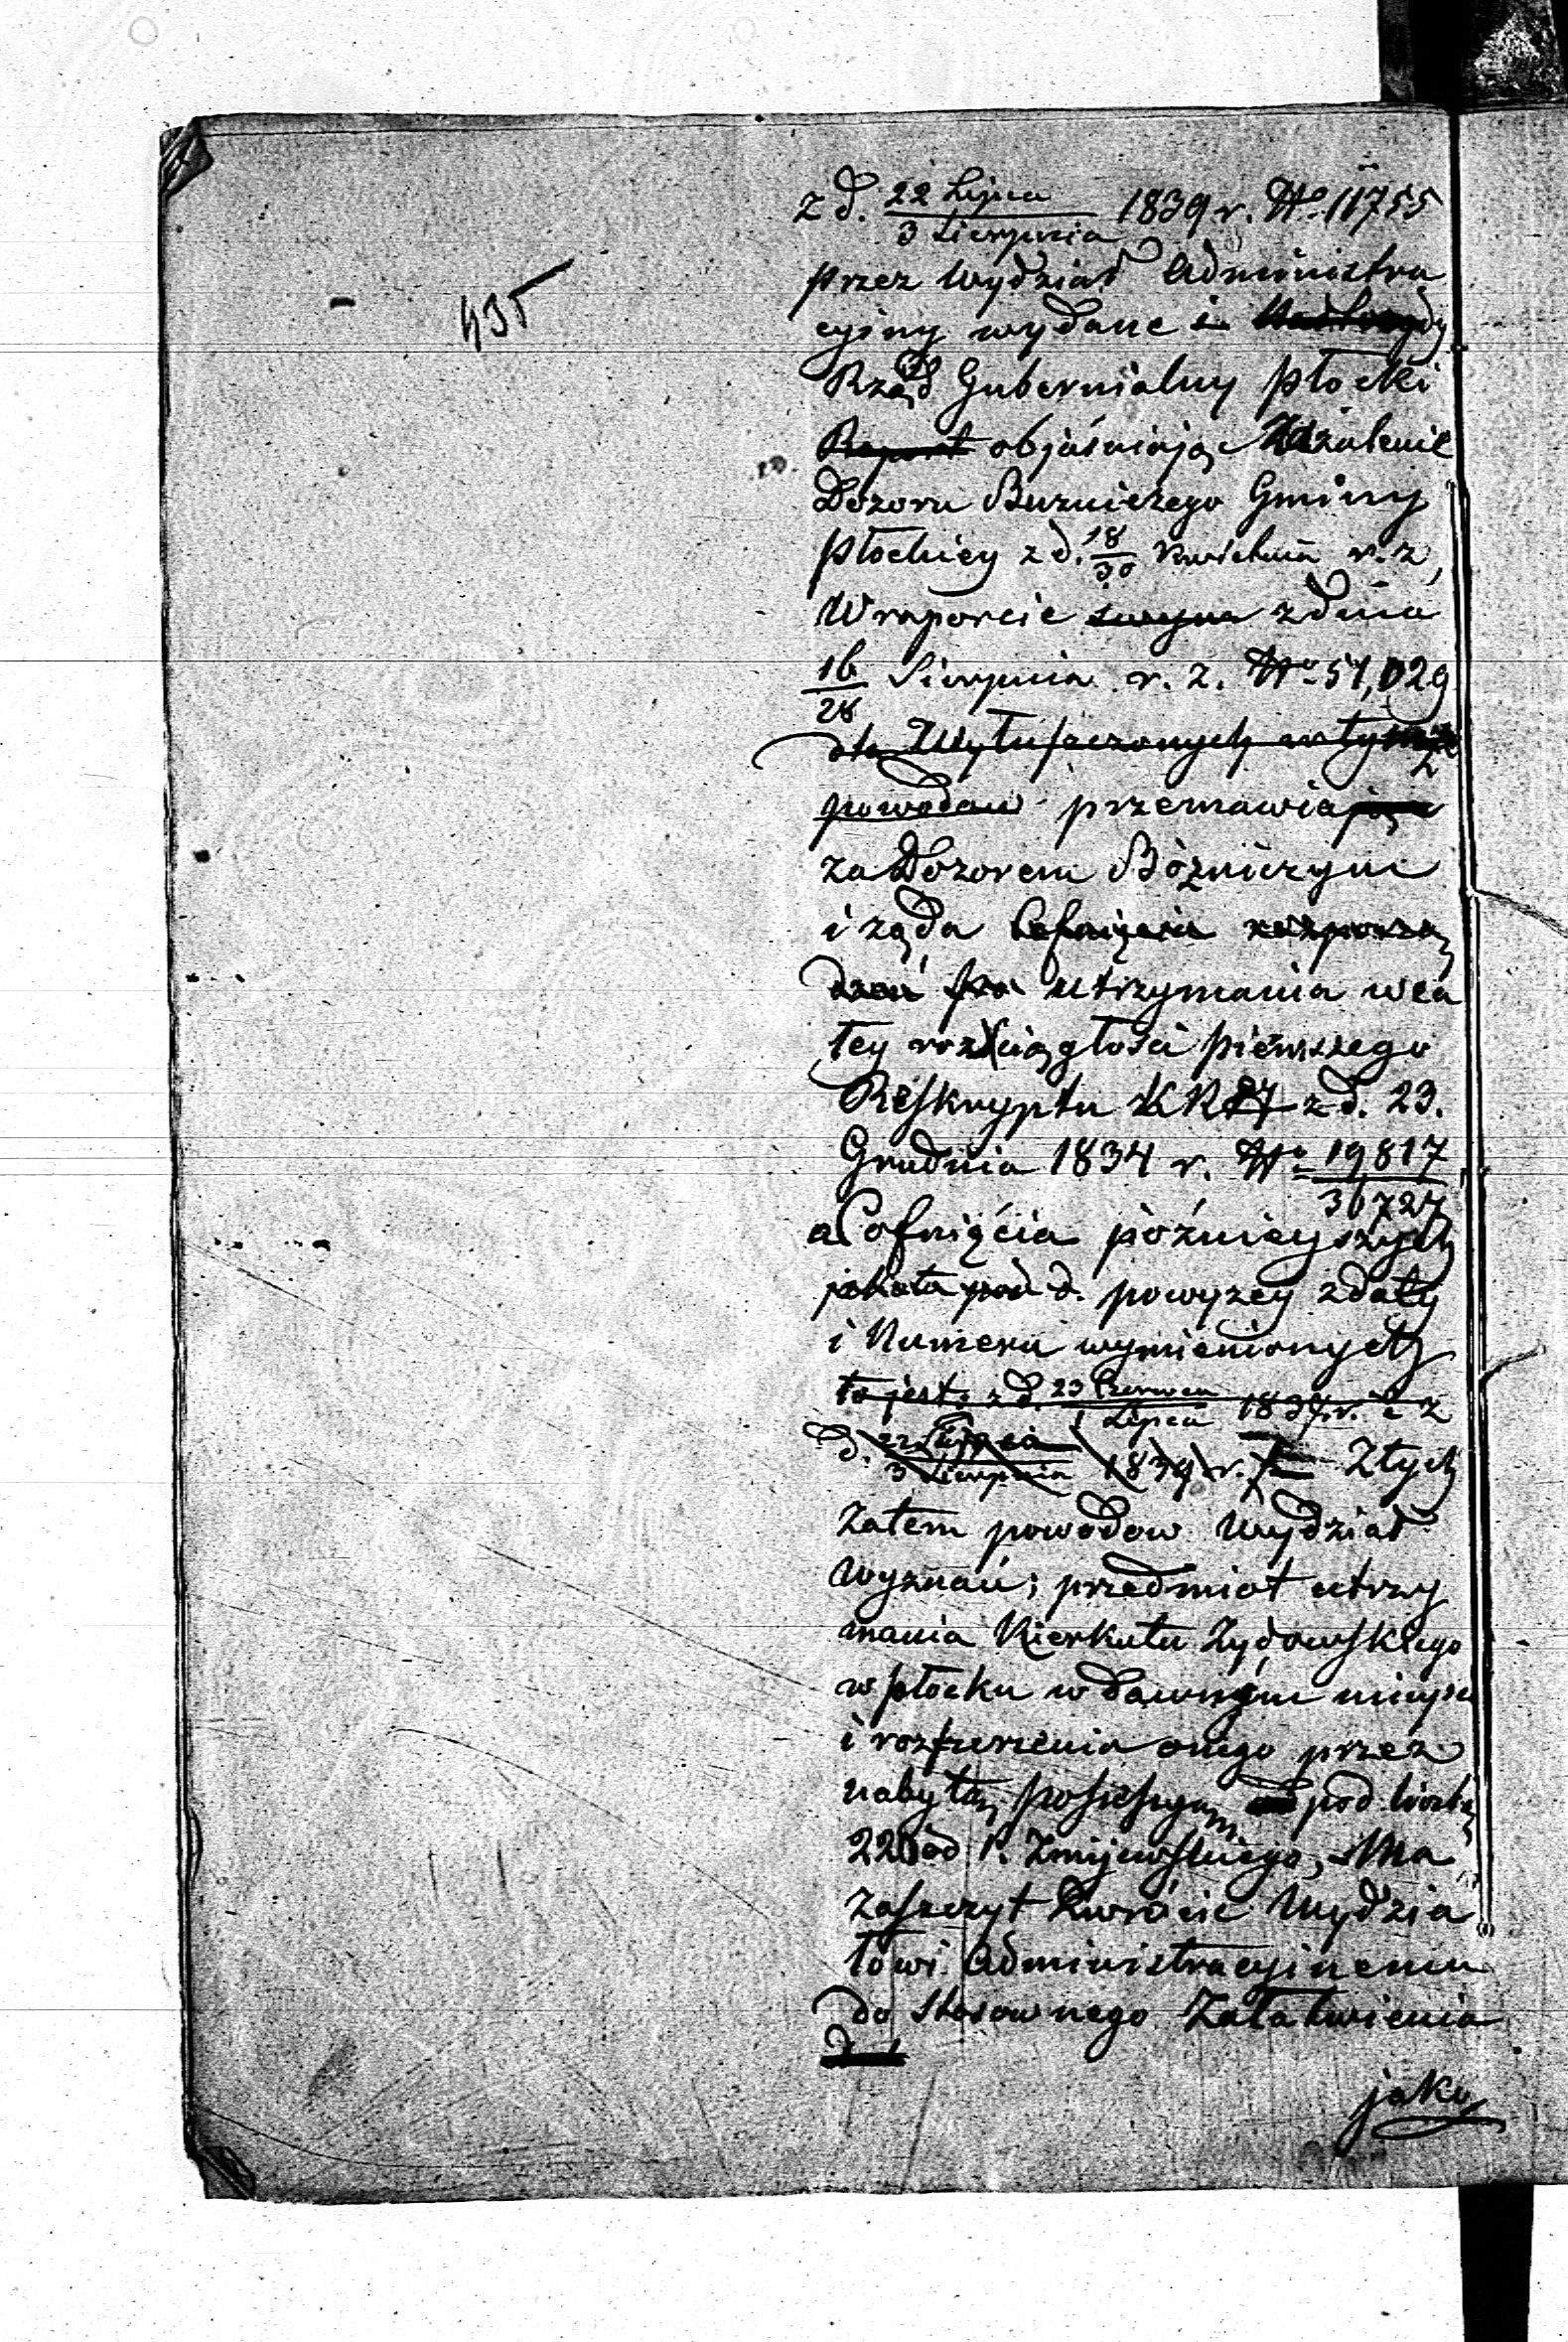 435
z d. 22 Lipca / 3 Sierpnia 1839 r. No 11755
przez Wydział Administra
cyiny wydane i gdy
Rząd Gubernialny Płocki
Raport objaśniając Zażalenie
Dozoru Bużniczego Gminy
Płockiey z d. 18/30 Kwietnia r. z,
W raporcie swym z dnia
16/28 Sierpnia r. z. No 51,029
dla Wyłuszczonych w tymże
powodów przemawia
za Dozorem Bóżniczym
i ząda Cofnięcia rozporzą
dzeń utrzymania w ca
łey rozciągłości pierwszego
Reskryptu KR z d. 23.
Grudnia 1834 r. No 19817/36727
a Cofnięcia poźnieyszych
jako to pod d. powyzey z daty
i Numeru wymienionych
to jest: z d. 23 Czerwca / Lipca 1837 r. i z
d. 22 Lipca / 3 Sierpnia 1839 r. Z tych
zatem powodow Wydział
Wyznań; przedmiot utrzy
mania Kierkutu Zydowskiego
w Płocku w dawnym mieyscu
i rozszerzenia onego przez
nabytą possessyą pod liczbą
220 od P. Zmijewskiego, Ma
Zaszczyt zwrócić Wydzia
łowi Administracyinemu
do stosownego Załatwienia
jako